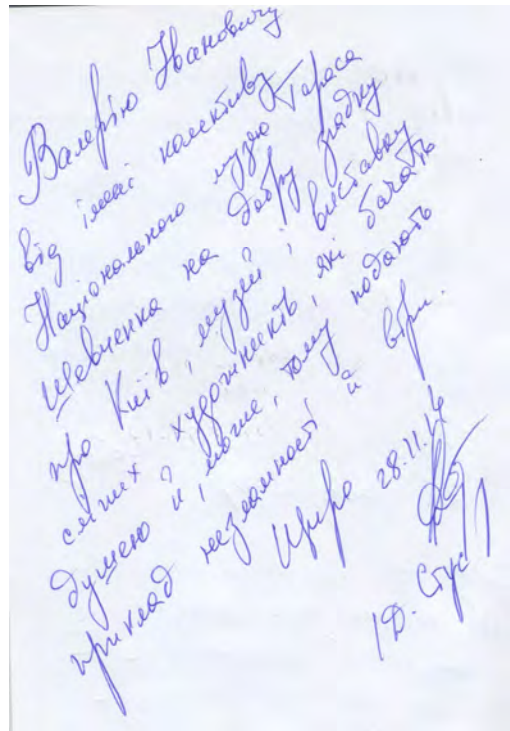 Валерію Івановичу
від імені колективу
Національного музею Тараса
Шевченка на добру згадку
про Київ, музей і виставку
сліпих художників, які бачать
душею й, може, тому подають
приклад незламності й віри.
Щиро 28.11.14
/Д. Стус/